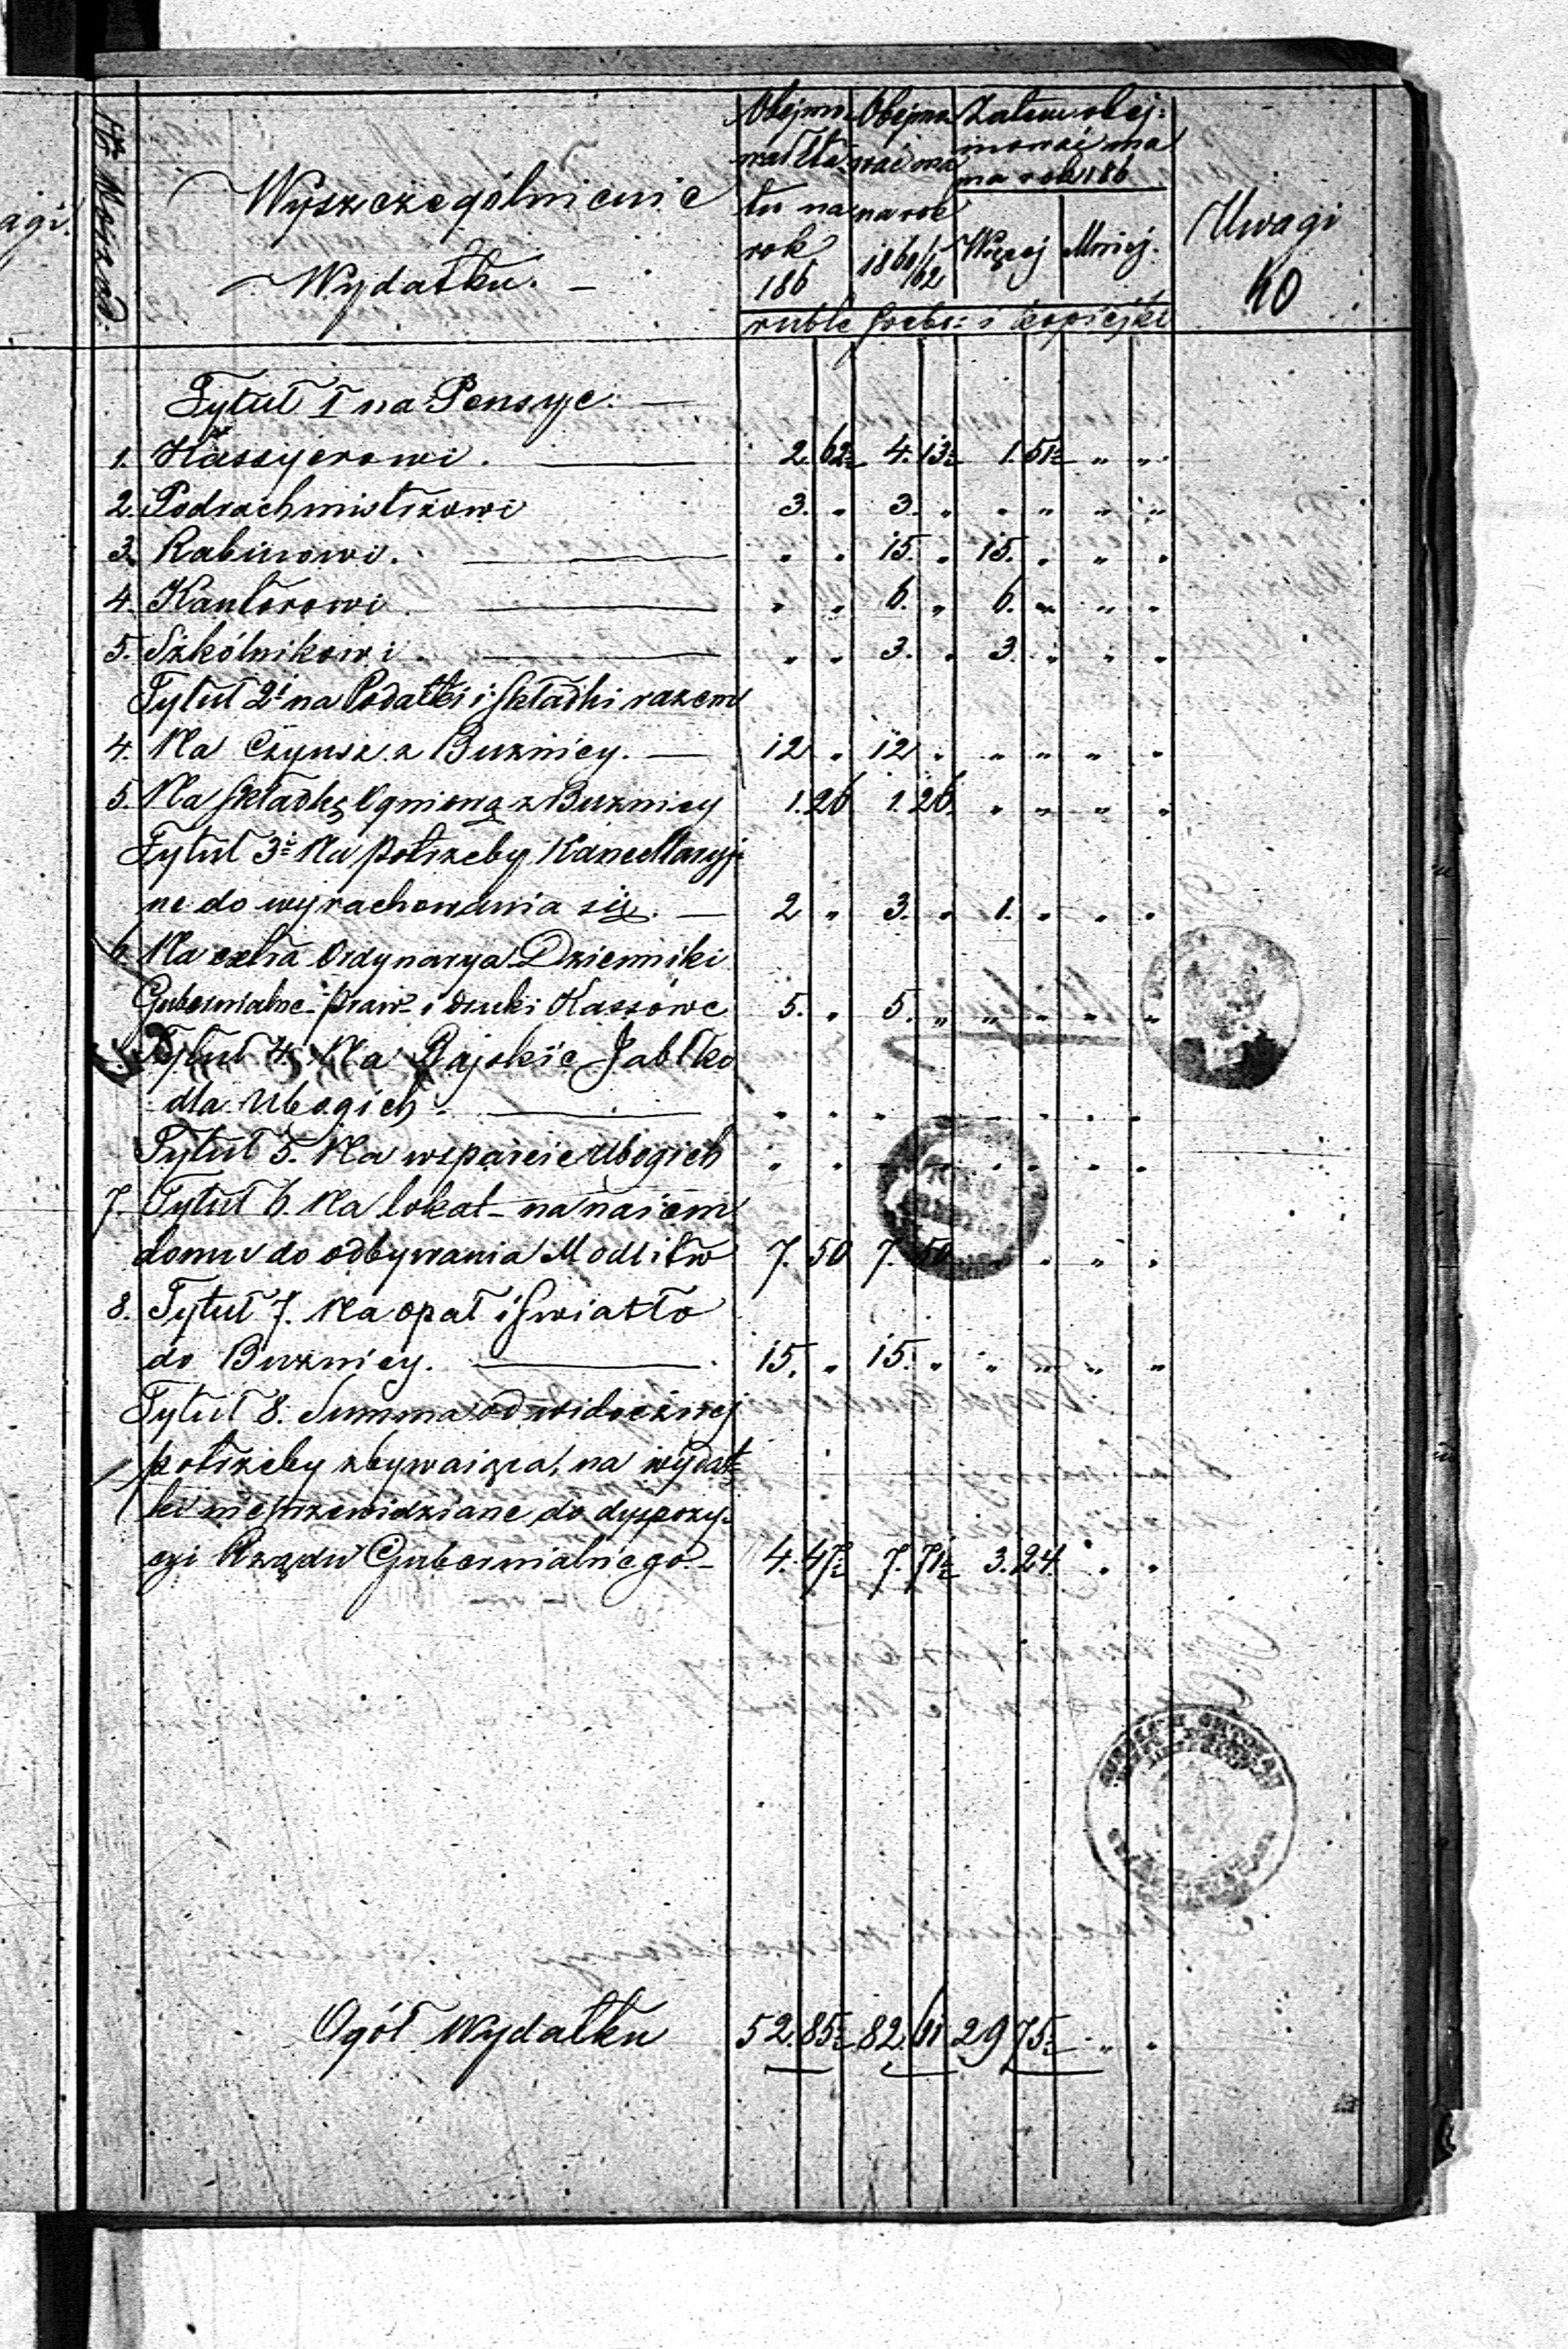 agi.
Wyszczególnienie
Wydatku. –
Obejmo- wał Eta- tu na rok 186
Obejmo- wać ma na rok 1861/62
Zatem obej: mować ma na rok 186
Więcej Mniej.
Uwagi
40
ruble srebr: i kopiejki
Tytuł I na Pensye: —
1. Kassyerowi. — 2. 62½ 4. 13½ 1. 51½ „ „
2. Podrachmistrzowi 3. „ 3. „ „ „ „ „
3. Rabinowi. — „ „ 15. „ 15. „ „ „
4. Kantorowi. — „ „ 6. „ 6. „ „ „
5. Szkólnikowi. — „ „ 3. „ 3. „ „ „
Tytuł 2i na Podatki i Składki razem
4. Na Czynsz z Buznicy. — 12 „ 12 „ „ „ „ „
5. Na Składkę Ogniową z Buznicy 1. 26 1. 26. „ „ „ „
Tytuł 3i Na potrzeby Kancellaryj-
ne do wyrachowania się. — 2 „ 3. „ 1. „ „ „
6. Na extra Ordynarya Dzienniki
Gubernialne - praw i druki Kassowe 5. „ 5. „ „ „ „ „
Tytuł 4. Na Rajskie Jabłko
dla Ubogich — „ „ „ „ „ „ „ „
Tytuł 5. Na wsparcie Ubogich „ „ „ „ „ „ „ „
7. Tytuł 6. Na lokal - na naiem
domu do odbywania Modlitw 7. 50 7. 50 „ „ „ „
8. Tytuł 7. Na opał i Swiatło
do Buznicy. — 15. „ 15. „ „ „ „ „
Tytuł 8. Summa od widoczney
potrzeby zbywaiąca, na wydat-
ki nieprzewidziane do dyspozy-
cyi Rządu Gubernialnego - 4. 47½ 7. 71½ 3. 24. „ „
Ogół Wydatku 52. 85½ 82. 61 29 75½ „ „